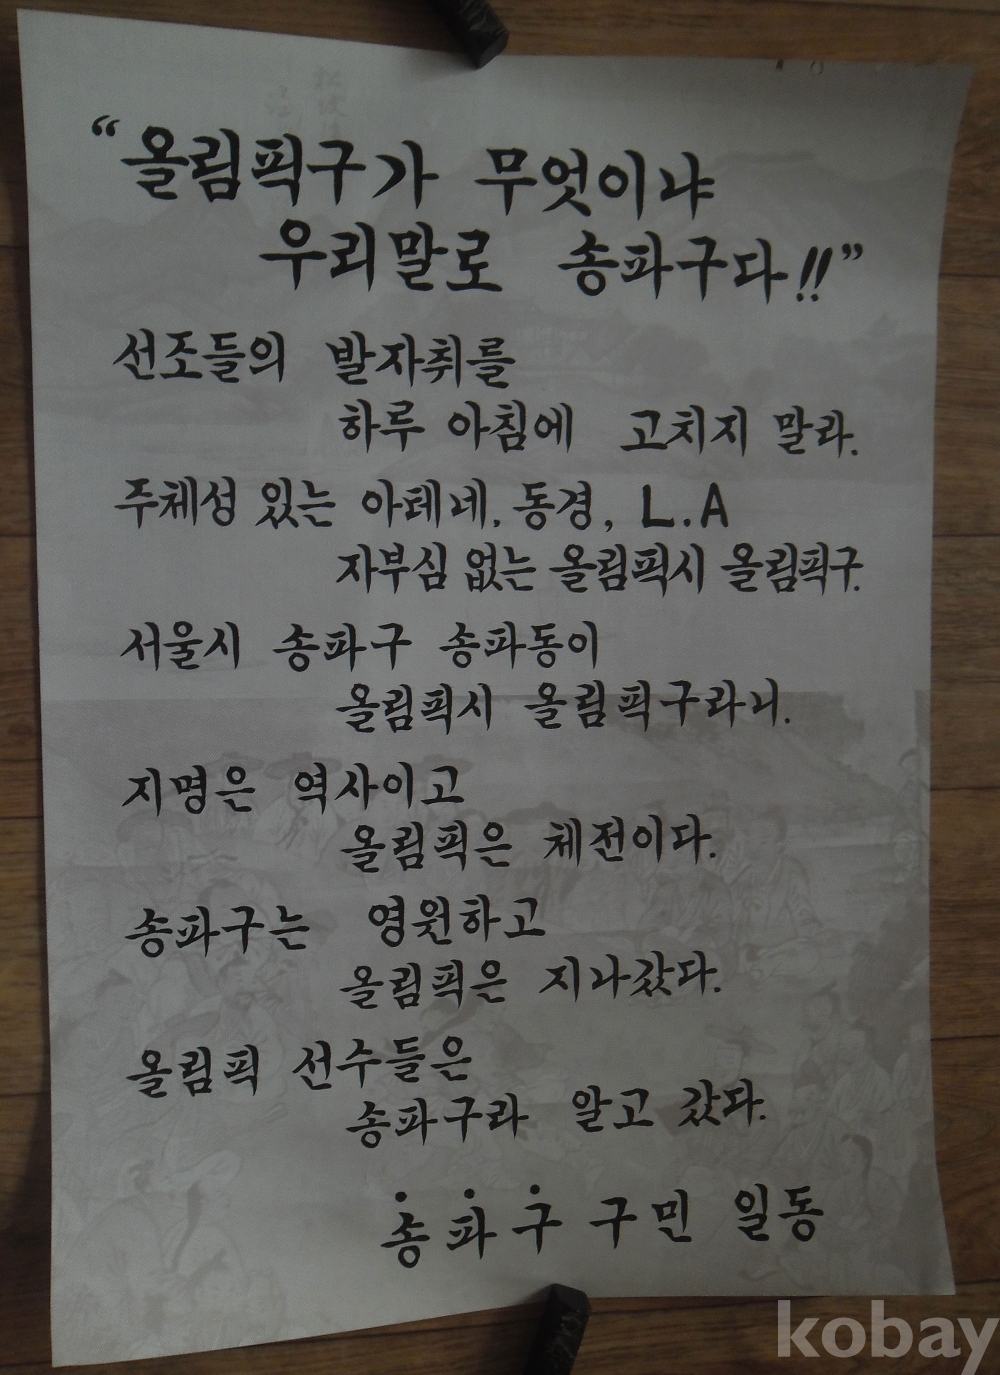 “올림픽구가 무엇이냐
우리말로 송파구다!!”
선조들의 발자취를
하루 아침에 고치지 말라.
주체성 있는 아테네, 동경, L.A
자부심 없는 올림픽시 올림픽구.
서울시 송파구 송파동이
올림픽시 올림픽구라니.
지명은 역사이고
올림픽은 체전이다.
송파구는 영원하고
올림픽은 지나갔다.
올림픽 선수들은
송파구라 알고 갔다.
송파구 구민 일동
kobay